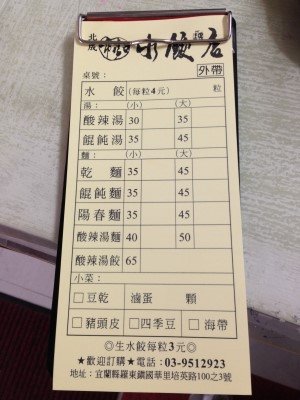 北成 水餃店
外帶
桌號:
水餃(每粒4元) 粒
湯: (小) (大)
酸辣湯 30 35
餛飩湯 35 45
麵: (小) (大)
乾麵 35 45
餛飩麵 35 45
陽春麵 35 45
酸辣湯麵 40 50
酸辣湯餃 65
小菜:
□豆乾 滷蛋 顆
□豬頭皮 □四季豆 □海帶
◎生水餃每粒3元◎
★歡迎訂購★電話:03-9512923
地址:宜蘭縣羅東鎮國華里培英路100之3號